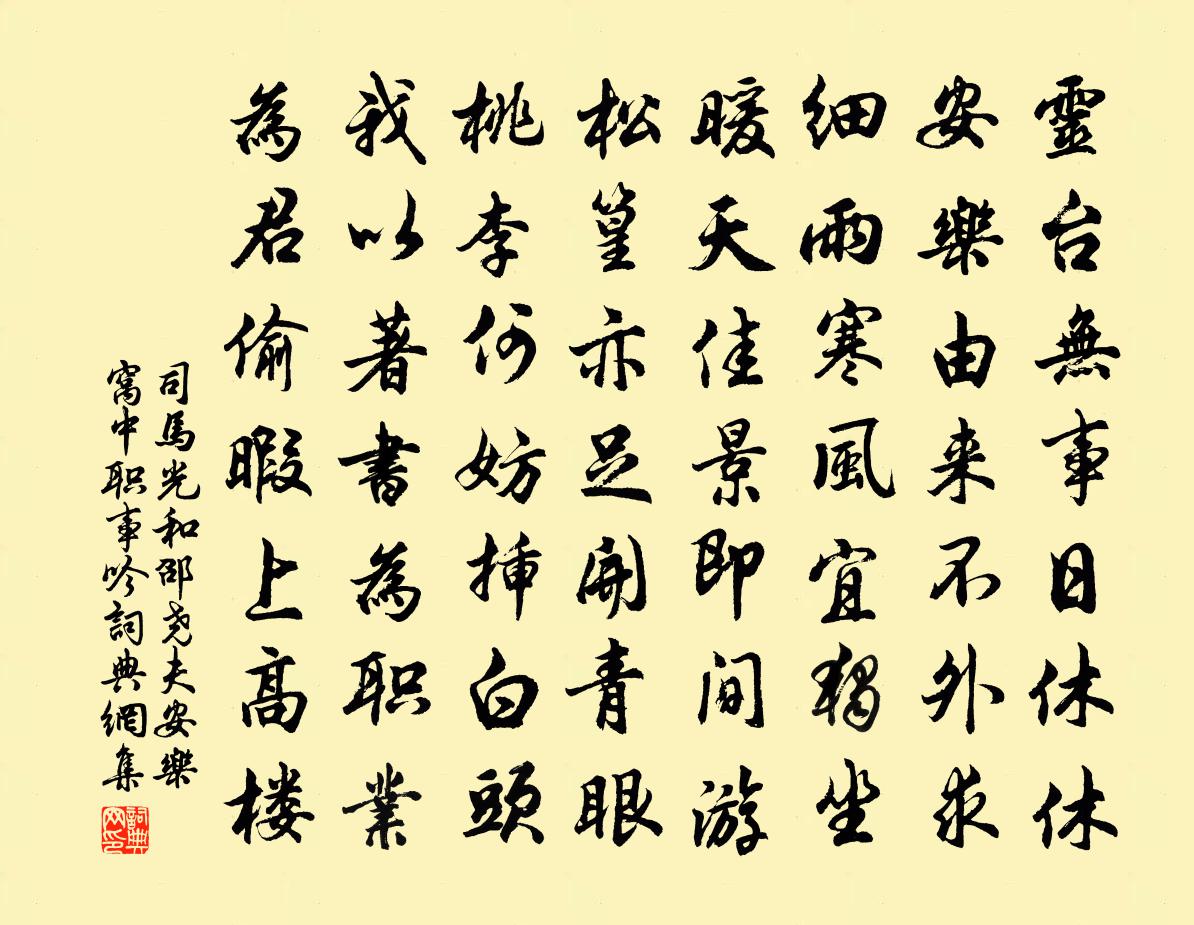 靈台無事日休休
安樂由来不外求
細雨寒風宜獨坐
暖天佳景即间游
松篁亦足開青眼
桃李何妨挿白頭
我以著書為职業
為君偷暇上高楼
司馬光和邵尧夫安樂
窩中职事吟詞典網集
詞典
网印